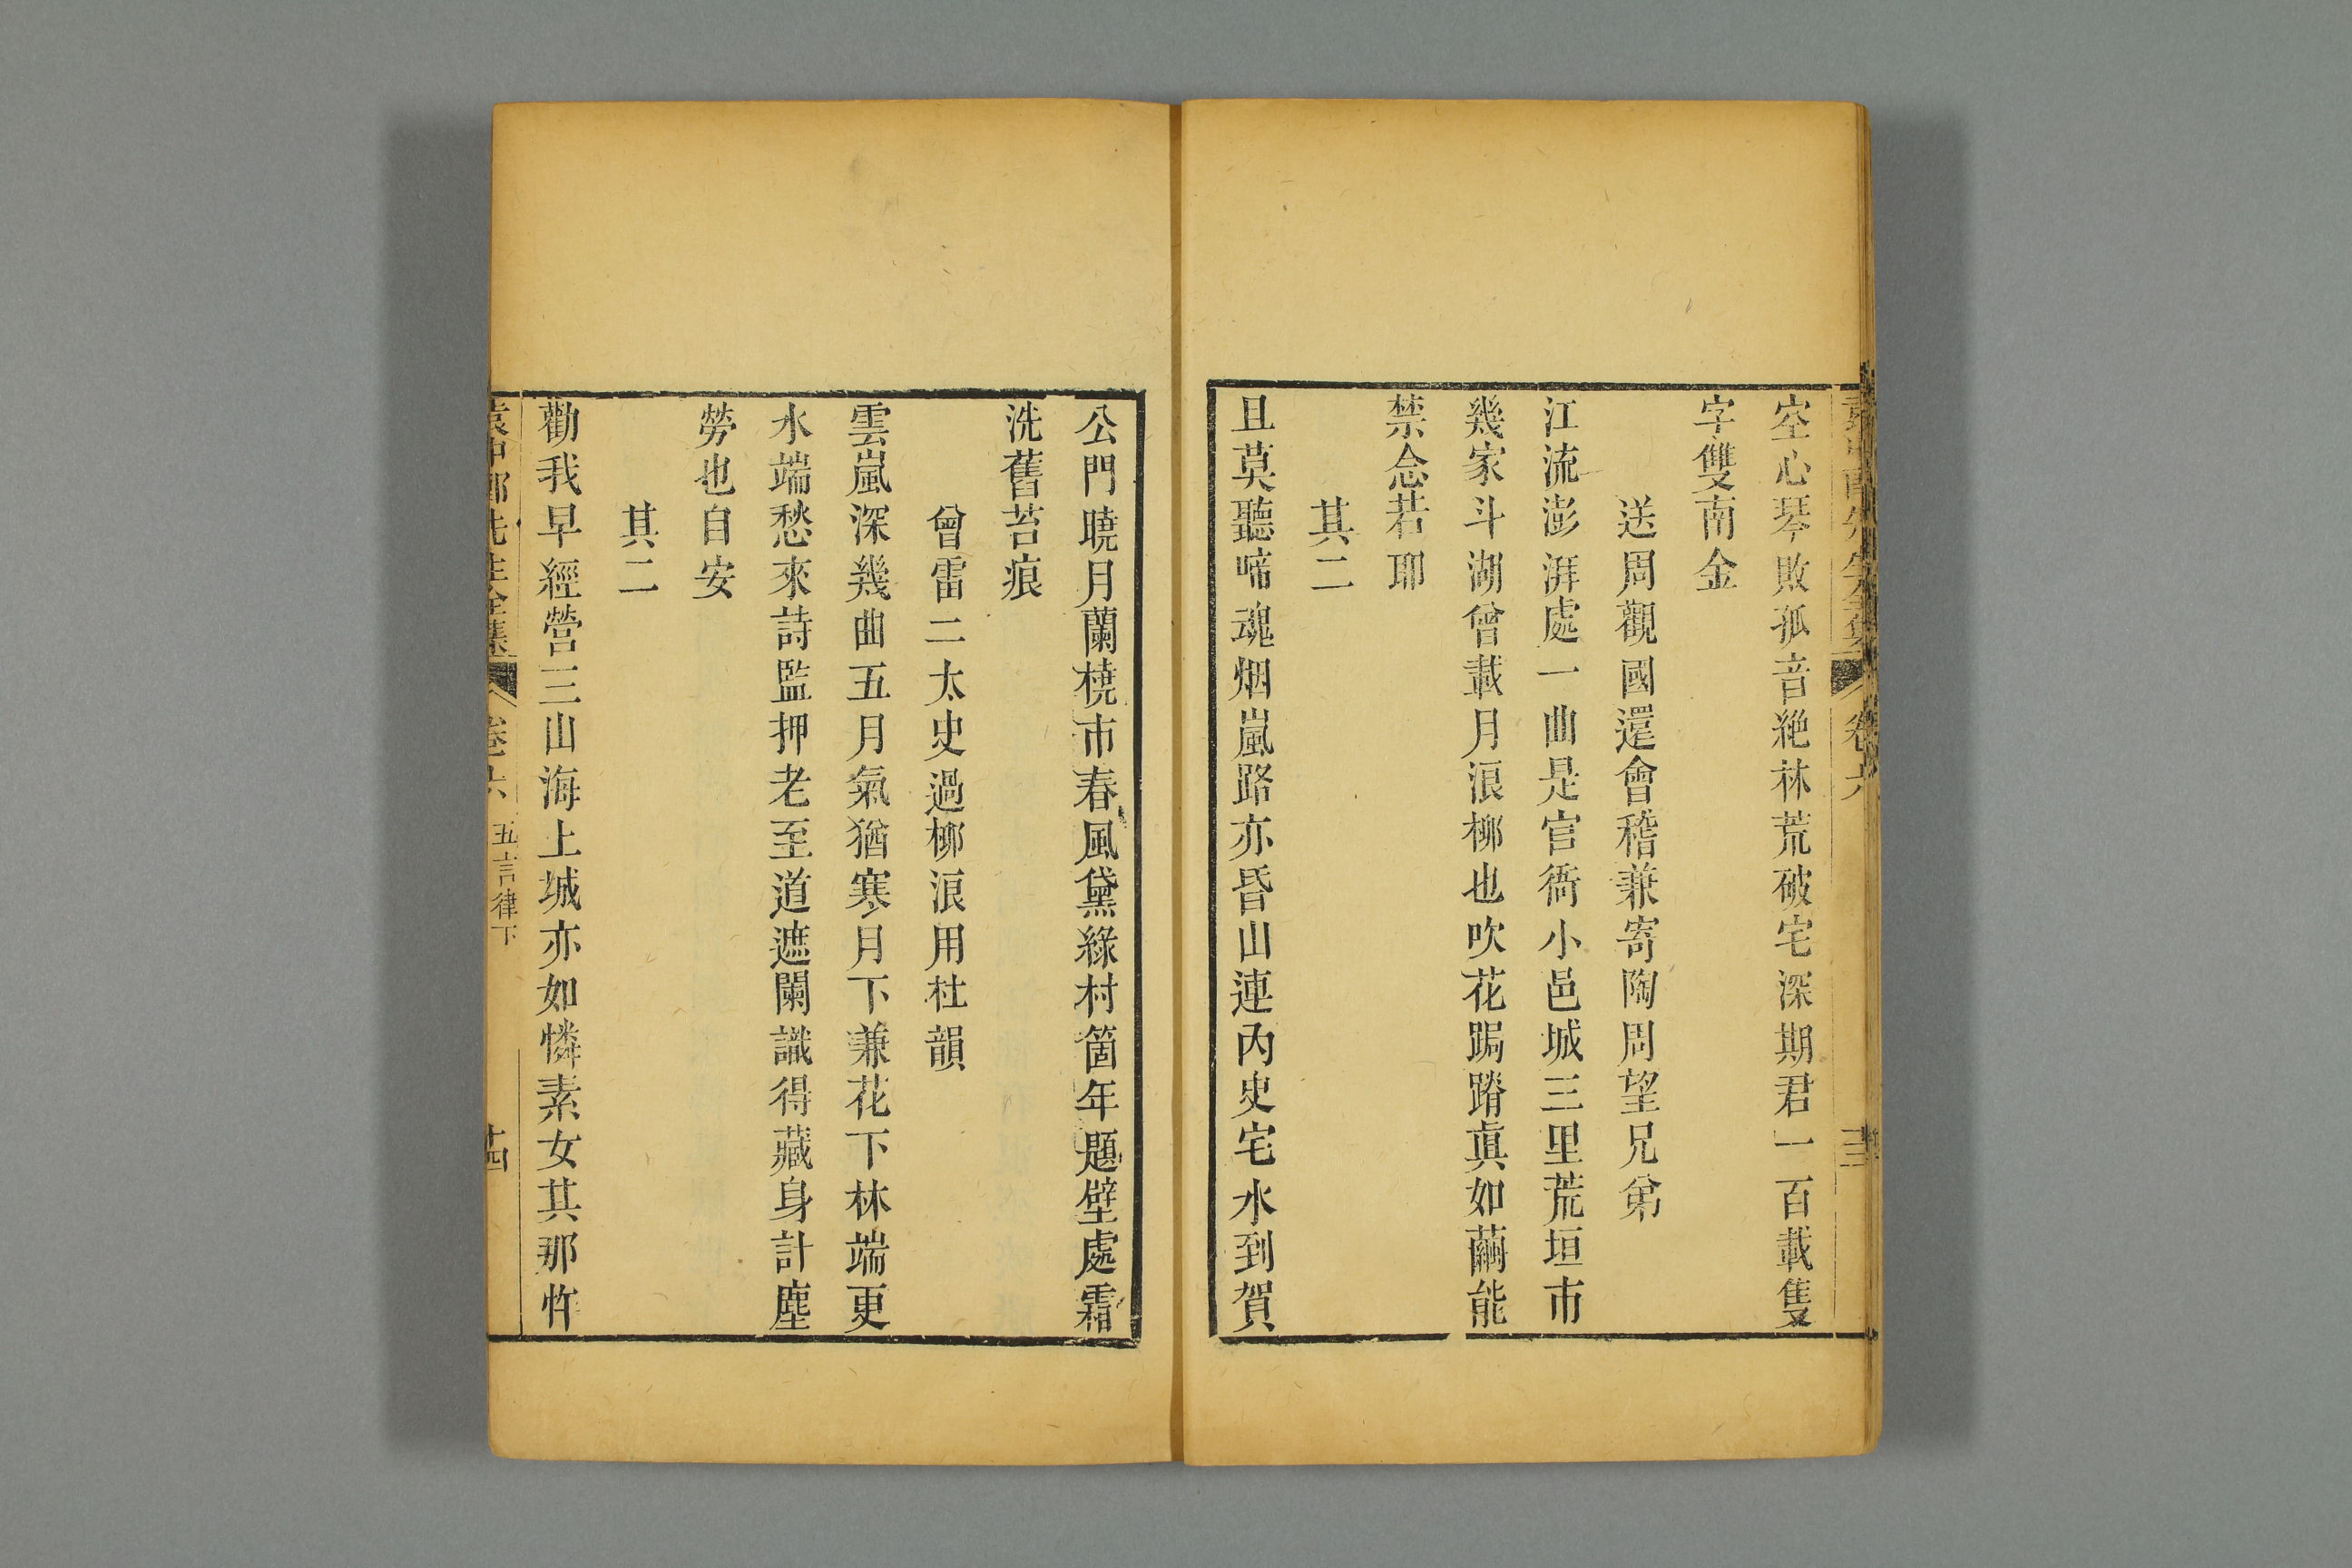 卷六
空心琴敗孤音絶林荒破宅深期君一百載隻
字雙南金
送周觀國還會稽兼寄陶周望兄弟
江流澎湃處一曲是官衙小邑城三里荒垣市
幾家斗湖曾載月浪柳也吹花跼蹐真如繭能
禁念若耶
其二
且莫聽啼魂烟嵐路亦昏山連內史宅水到賀
公門曉月蘭橈市春風黛綠村箇年題壁處霜
洗舊苔痕
曾雷二太史過柳浪用杜韻
雲嵐深幾曲五月氣猶寒月下兼花下林端更
水端愁來詩監押老至道遮闌識得藏身計塵
勞也自安
其二
勸我早經營三山海上城亦如憐素女其那怍
袁中郎先生全集 卷六 五言律下 十四